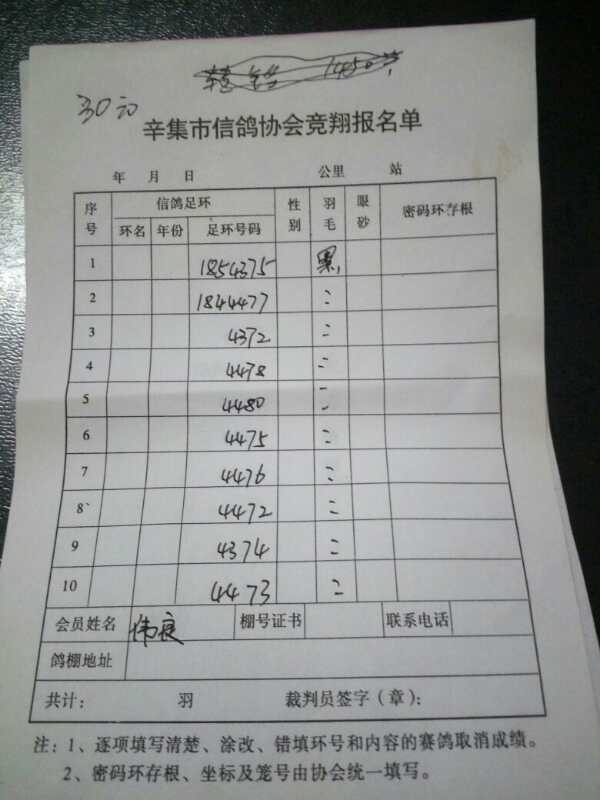 30元
辛集市信鸽协会竞翔报名单
年 月 日 公里 站
序号 信鸽足环 性别 羽毛 眼砂 密码环存根
环名 年份 足环号码
1 1854375 黑
2 1844477 〃
3 4372 〃
4 4478 〃
5 4480 〃
6 4475 〃
7 4476 〃
8 4472 〃
9 4374 〃
10 4473 〃
会员姓名 伟良 棚号证书 联系电话
鸽棚地址
共计: 羽 裁判员签字(章):
注:1、逐项填写清楚、涂改、错填环号和内容的赛鸽取消成绩。
2、密码环存根、坐标及笼号由协会统一填写。